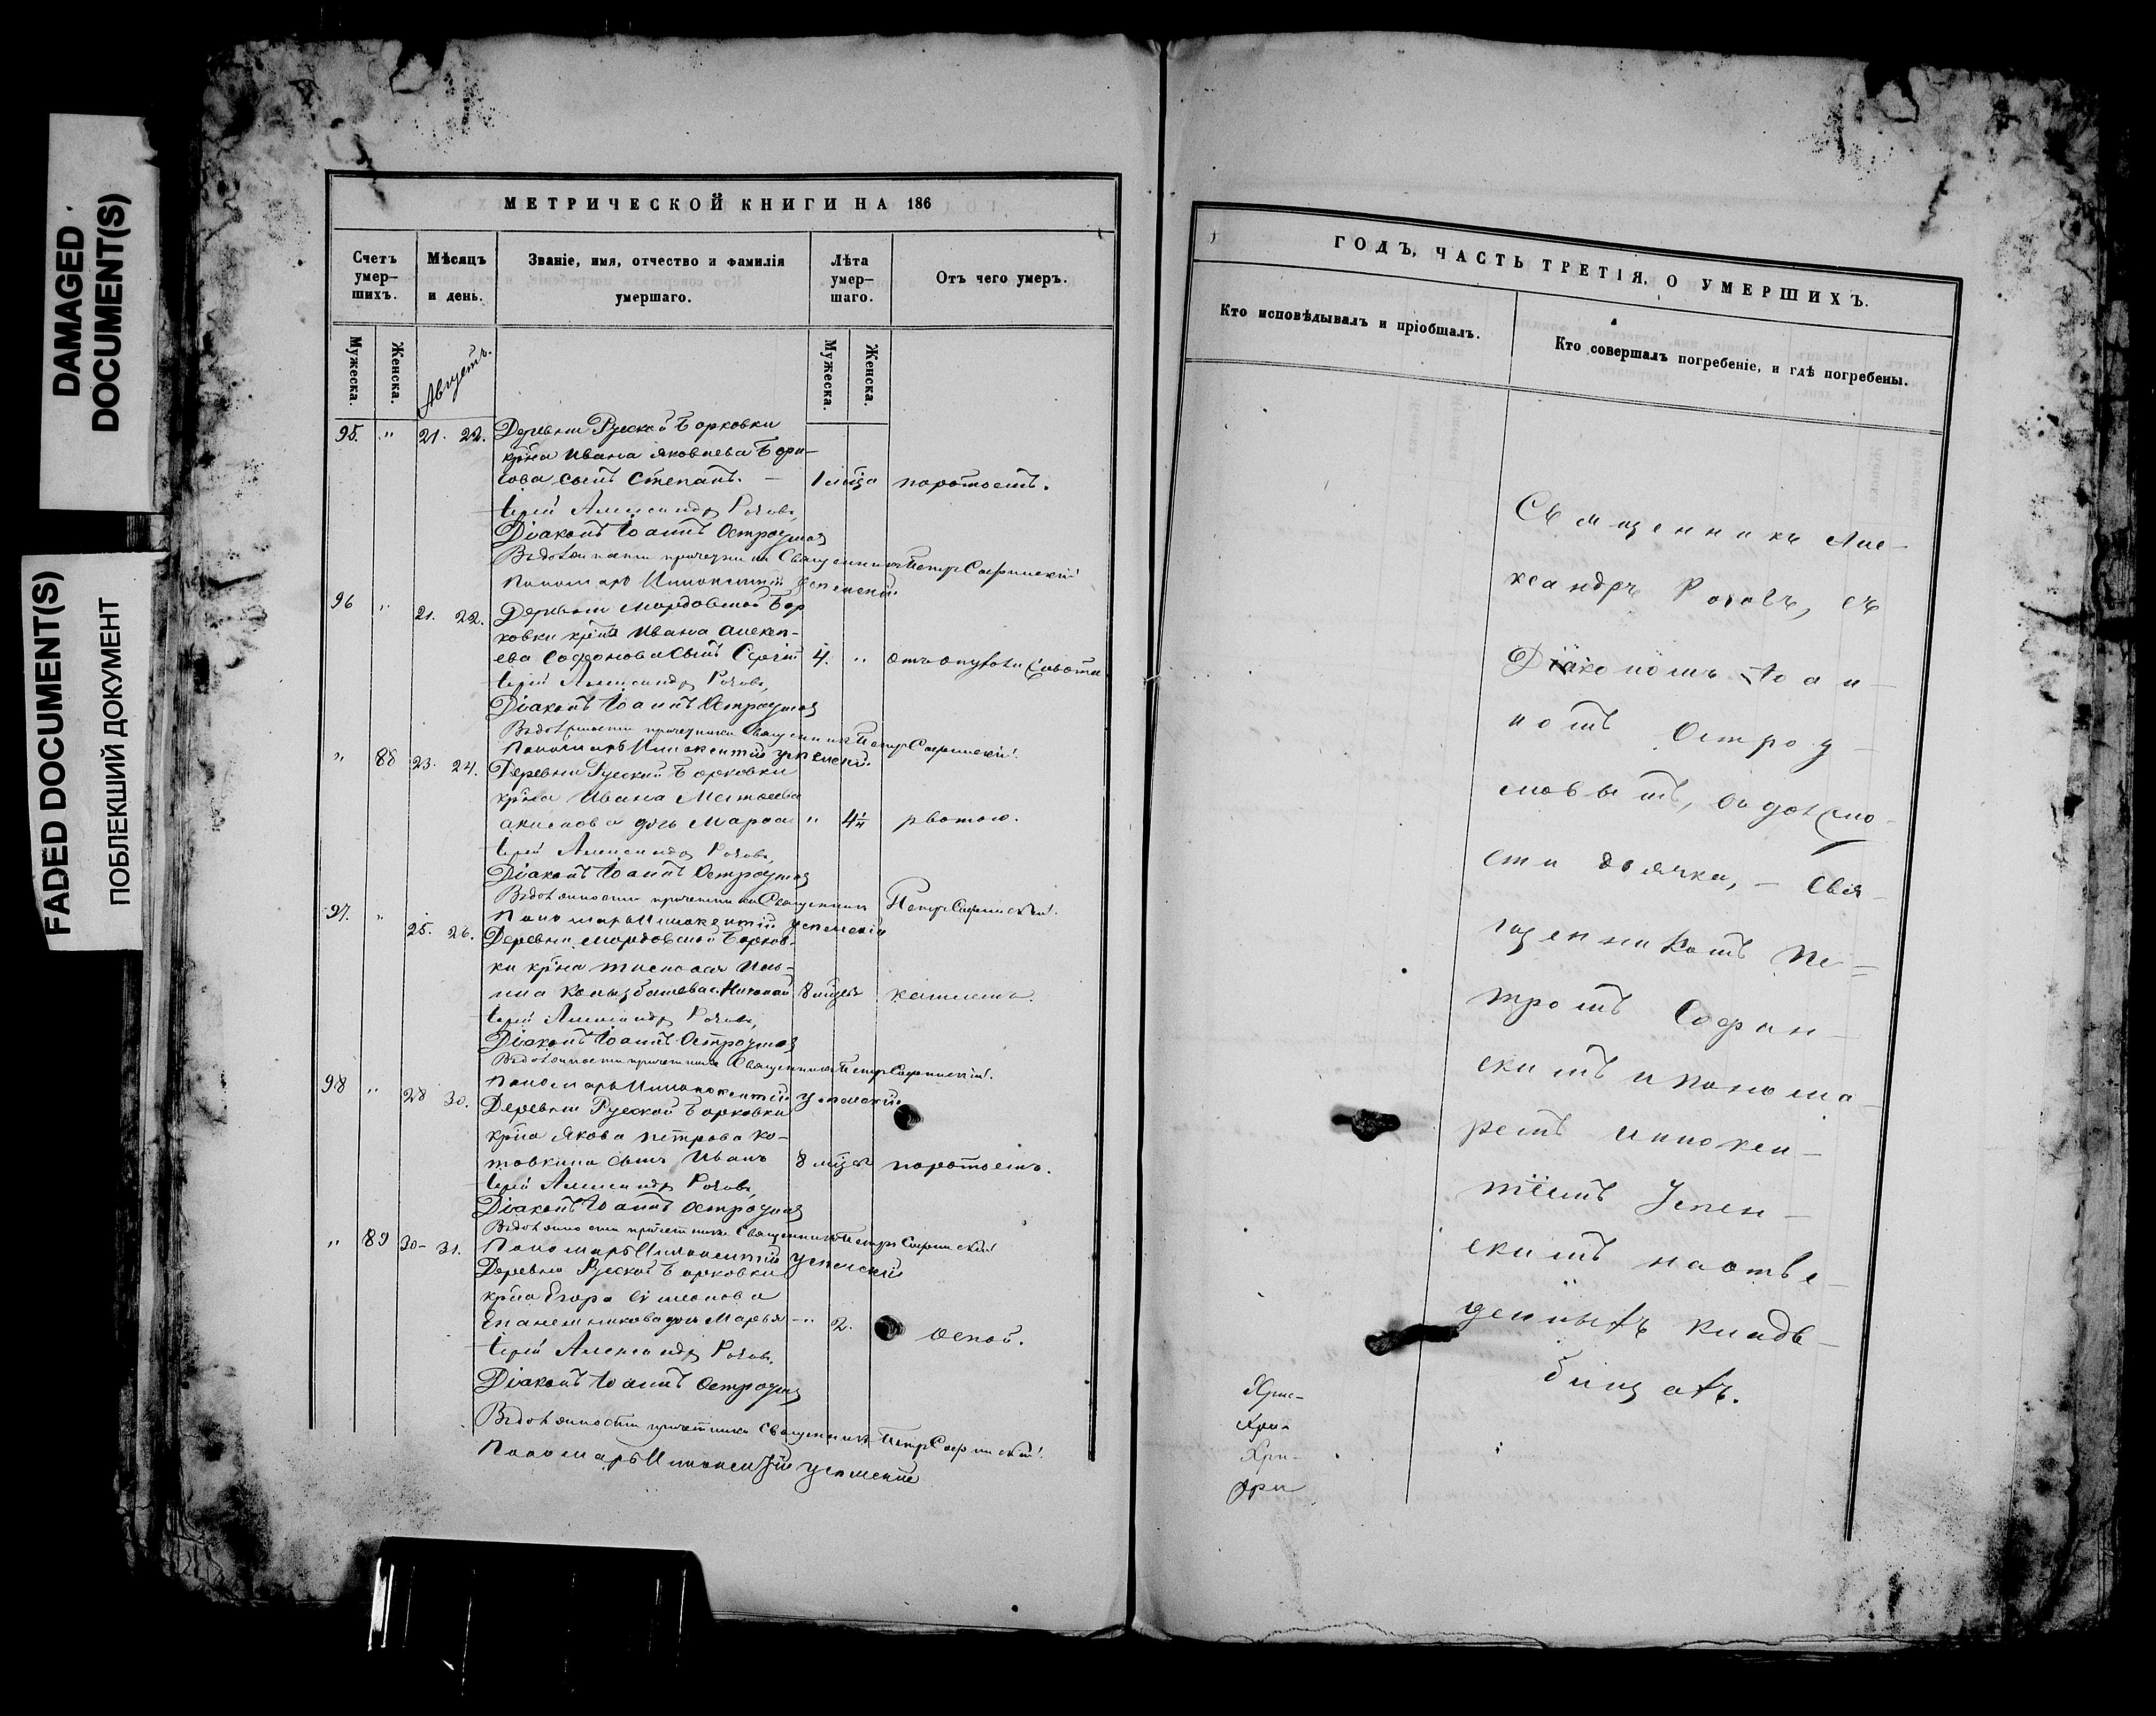 DAMAGED
DOCUMENT(S)
FADED DOCUMENT(S)
ПОБЛЕКШИЙ ДОКУМЕНТ
МЕТРИЧЕСКОЙ КНИГИ НА 186
Счетъ умер-шихъ.
Мѣсяцъ и день.
Званіе, имя, отчество и фамилія умершаго.
Лѣта умер-шаго.
Отъ чего умеръ.
Мужеска.
Женска.
Августъ.
Мужеска.
Женска.
95. " 21. 22. Деревни Руской Борковки
крна Ивана Яковлева Бори-
сова сынъ Степанъ. — 1 мцa поносомъ.
Іерей Александръ Роговъ,
Діаконъ Іоаннъ Остроумовъ
Въ должности причетника Священникъ Петръ Софинскій
Пономарь Иннокентій Успенскій
96 " 21. 22. Деревни Мордовской Бор
ковки крна Ивана Алексѣ-
ева Софонова сынъ Сергій 4. " отъ опухоли живота
Іерей Александръ Роговъ,
Діаконъ Іоаннъ Остроумовъ
Въ должности причетника Священникъ Петръ Софинскій
Пономарь Иннокентій Успенскій
" 88 23. 24. Деревни Руской Борковки
крна Ивана Матвеева
дочь Марфа " 4¼ рвотою.
Іерей Александръ Роговъ,
Діаконъ Іоаннъ Остроумовъ
Въ должности причетника Священникъ Петръ Софинскій
Пономарь Иннокентій Успенскій
97. " 25. 26. Деревни Мордовской Борков-
ки крна
Николай 8 мцевъ кашлемъ.
Іерей Александръ Роговъ,
Діаконъ Іоаннъ Остроумовъ
Въ должности причетника Священникъ Петръ Софинскій
Пономарь Иннокентій Успенскій
98 " 28 30. Деревни Руской Борковки
крна Якова Петрова Ко-
товкина сынъ Иванъ 8 мцевъ поносомъ.
Іерей Александръ Роговъ,
Діаконъ Іоаннъ Остроумовъ
Въ должности причетника Священникъ Петръ Софинскій
Пономарь Иннокентій Успенскій
" 89 30 - 31. Деревни Руской Борковки
крна Егора Симеонова
Епанешникова дочь Марья — " 2. Оспой.
Іерей Александръ Роговъ,
Діаконъ Іоаннъ Остроумовъ
Въ должности причетника Священникъ Петръ Софинскій
Пономарь Иннокентій Успенскій
ГОДЪ, ЧАСТЬ ТРЕТІЯ, О УМЕРШИХЪ.
Кто исповѣдывалъ и пріобщалъ.
Кто совершалъ погребеніе, и гдѣ погребены.
Священникъ Але-
ксандръ Роговъ, съ
Діакономъ Іоан-
номъ Остроу-
мовымъ, въ должно-
сти дьячка, — Свя-
щенникомъ Пе-
тромъ Софин-
скимъ и понома-
ремъ Иннокен-
тіемъ Успен-
скимъ на отве-
денныхъ кладь-
бищахъ.
Хрис-
Хри-
Хри-
Хри